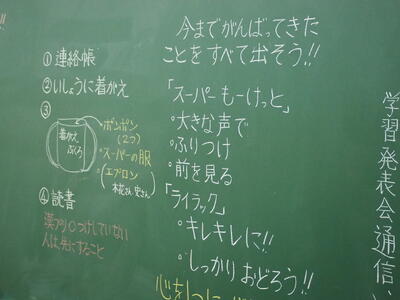 !!
①連絡帳
②いしょうに着がえ
③
着がえ
ぶくろ
・ポンポン
(2つ)
・スーパーの服
(エプロン
④読書
漢プリ○つけしていない
人は先にすること
今までがんばってきた
ことをすべて出そう!!
「スーパーもーけっと」
・大きな声で
・ふりつけ
・前を見る
「ライラック」
・キレキレに!!
・しっかりおどろう!!
心を1つに
学習発表会通信